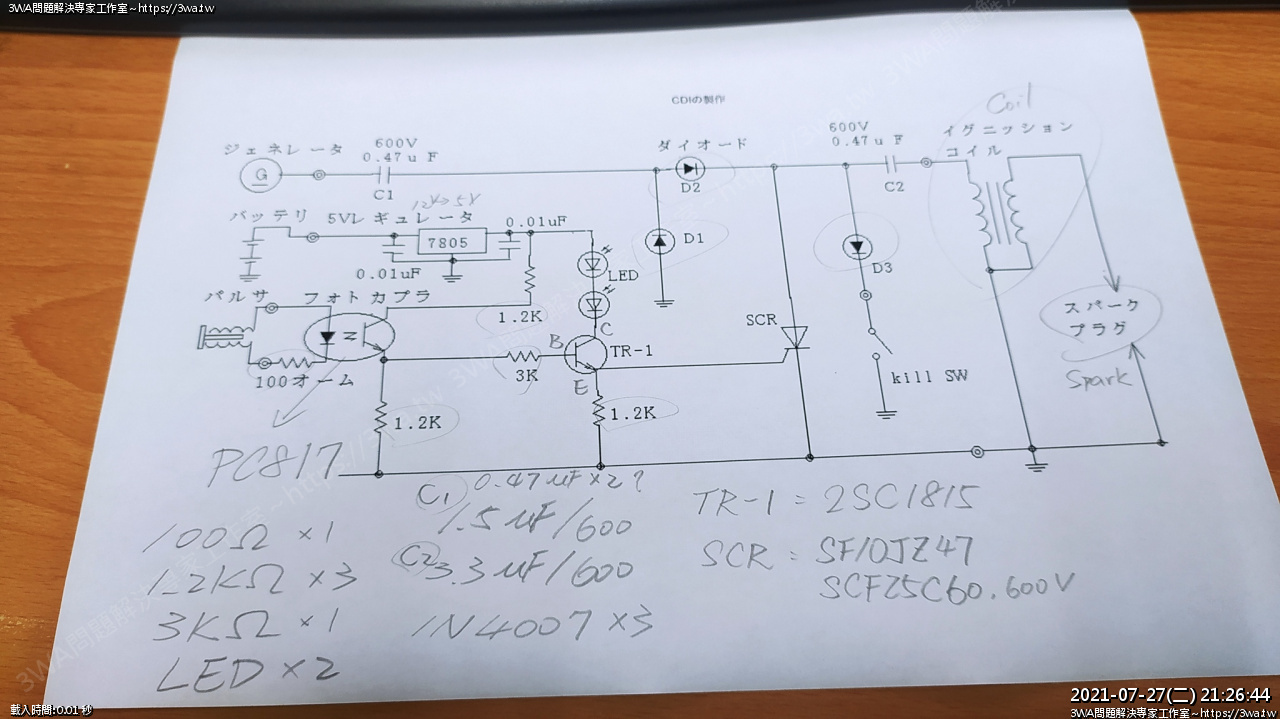 3WA問題解決專家工作室~https://3wa.tw
CDIの製作
Coil
ジェネレータ
600V
0.47uF
ダイオード
600V
0.47uF
イグニッション
コイル
G
C1
D2
C2
12V→5V
バッテリ
5Vレギュレータ
0.01uF
7805
D1
D3
0.01uF
LED
パルサ
フォトカプラ
1.2K
C
SCR
スパーク
プラグ
B
TR-1
100オーム
3K
E
kill SW
Spark
1.2K
1.2K
PC817
C1 0.47uF×2?
1.5uF/600
TR-1 = 2SC1815
100Ω ×1
C2 3.3uF/600
SCR : SF10JZ47
1.2KΩ ×3
SCF25C60.600V
3KΩ ×1
1N4007 ×3
LED ×2
2021-07-27(二) 21:26:44
載入時間:0.01 秒
3WA問題解決專家工作室~https://3wa.tw